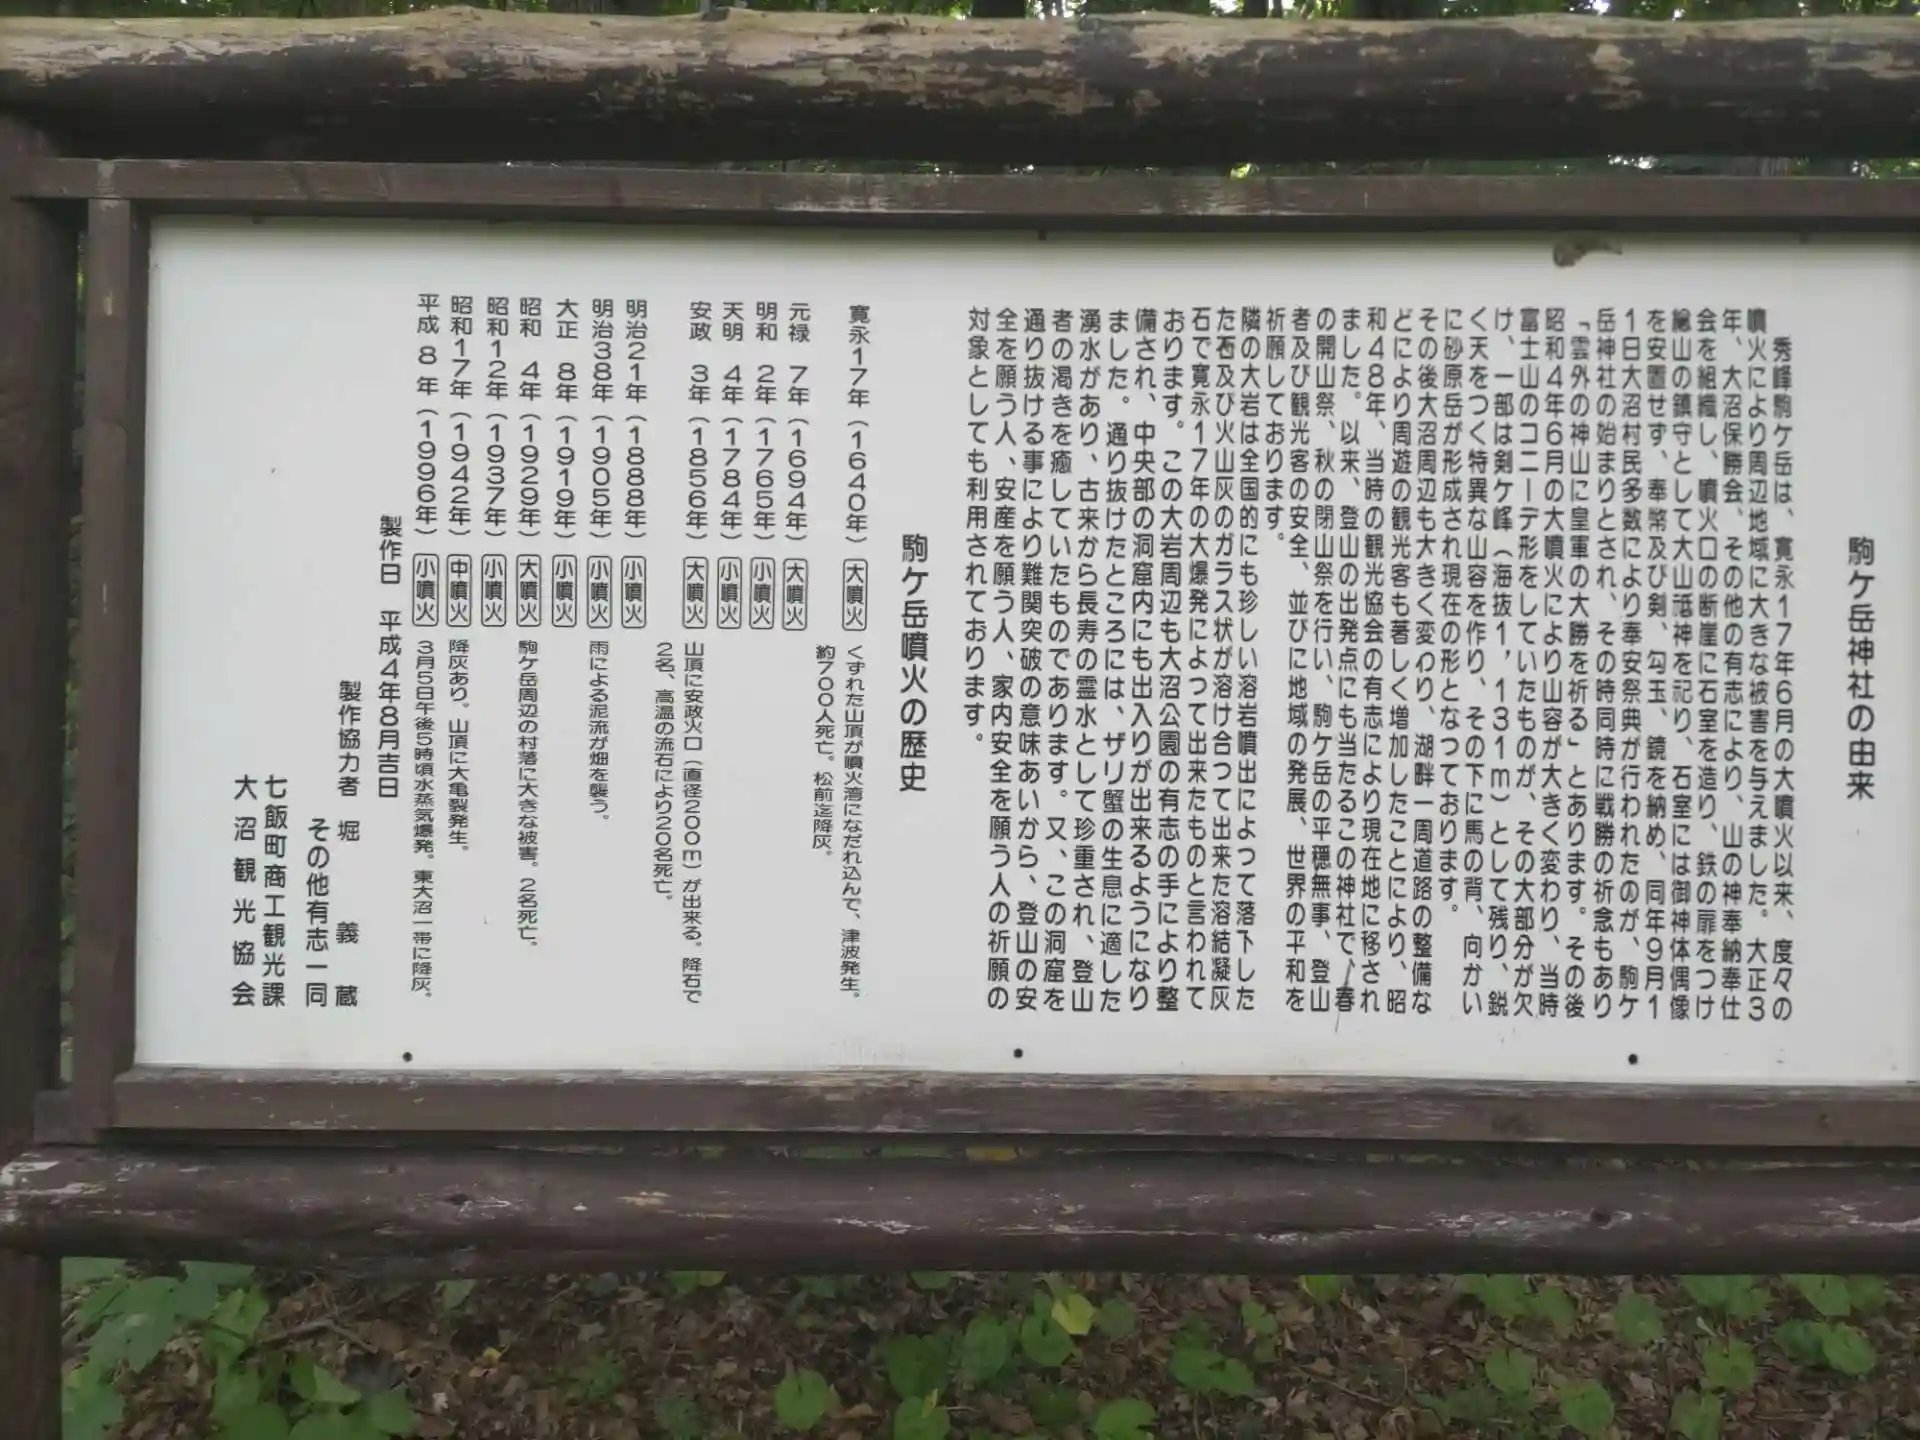 駒ケ岳神社の由来
秀峰駒ケ岳は、寛永17年6月の大噴火以来、度々の
噴火により周辺地域に大きな被害を与えました。大正3
年、大沼保勝会、その他の有志により、山の神奉納奉仕
会を組織し、噴火口の断崖に石室を造り、鉄の扉をつけ
總山の鎮守として大山祗神を祀り、石室には御神体偶像
を安置せず、奉幣及び剣、勾玉、鏡を納め、同年9月1
1日大沼村民多数により奉安祭典が行われたのが、駒ケ
岳神社の始まりとされ、その時同時に戦勝の祈念もあり
「雲外の神山に皇軍の大勝を祈る」とあります。その後
昭和4年6月の大噴火により山容が大きく変わり、当時
富士山のコニーデ形をしていたものが、その大部分が欠
け、一部は剣ケ峰（海抜1，131m）として残り、鋭
く天をつく特異な山容を作り、その下に馬の背、向かい
に砂原岳が形成され現在の形となっております。
その後大沼周辺も大きく変わり、湖畔一周道路の整備な
どにより周遊の観光客も著しく増加したことにより、昭
和48年、当時の観光協会の有志により現在地に移され
ました。以来、登山の出発点にも当たるこの神社で、春
の開山祭、秋の閉山祭を行い、駒ケ岳の平穏無事、登山
者及び観光客の安全、並びに地域の発展、世界の平和を
祈願しております。
隣の大岩は全国的にも珍しい溶岩噴出によって落下した
た石及び火山灰のガラス状が溶け合って出来た溶結凝灰
石で寛永17年の大爆発によって出来たものと言われて
おります。この大岩周辺も大沼公園の有志の手により整
備され、中央部の洞窟内にも出入りが出来るようになり
ました。通り抜けたところには、ザリ蟹の生息に適した
湧水があり、古来から長寿の霊水として珍重され、登山
者の渇きを癒していたものであります。又、この洞窟を
通り抜ける事により難関突破の意味あいから、登山の安
全を願う人、安産を願う人、家内安全を願う人の祈願の
対象としても利用されております。
駒ケ岳噴火の歴史
寛永17年（1640年）大噴火 くずれた山頂が噴火湾になだれ込んで、津波発生。
約700人死亡。松前迄降灰。
元禄 7年（1694年）大噴火
明和 2年（1765年）小噴火
天明 4年（1784年）小噴火
安政 3年（1856年）大噴火 山頂に安政火口（直径200m）が出来る。降石で
2名、高温の流石により20名死亡。
明治21年（1888年）小噴火
明治38年（1905年）小噴火 雨による泥流が畑を襲う。
大正 8年（1919年）小噴火
昭和 4年（1929年）大噴火 駒ケ岳周辺の村落に大きな被害。2名死亡。
昭和12年（1937年）小噴火
昭和17年（1942年）中噴火 降灰あり、山頂に大亀裂発生。
平成 8年（1996年）小噴火 3月5日午後5時頃水蒸気爆発。東大沼一帯に降灰。
製作日 平成4年8月吉日
製作協力者 堀 義蔵
その他有志一同
七飯町商工観光課
大沼観光協会